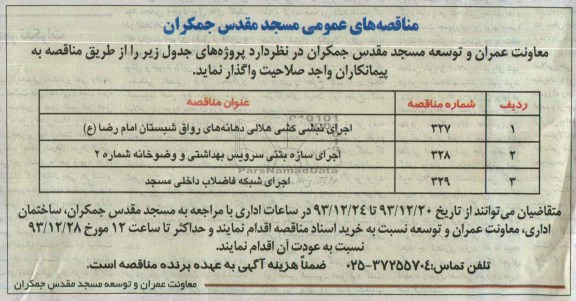 مناقصه‌های عمومی مسجد مقدس جمکران
معاونت عمران و توسعه مسجد مقدس جمکران در نظردارد پروژه‌های جدول زیر را از طریق مناقصه به
پیمانکاران واجد صلاحیت واگذار نماید.
ردیف شماره مناقصه عنوان مناقصه
۱ ۳۲۷ اجرای نبشی کشی هلالی دهانه‌های رواق شبستان امام رضا (ع)
۲ ۳۲۸ اجرای سازه بتنی سرویس بهداشتی و وضوخانه شماره ۲
۳ ۳۲۹ اجرای شبکه فاضلاب داخلی مسجد
ParsNamadData
متقاضیان می‌توانند از تاریخ ۹۳/۱۲/۲۰ تا ۹۳/۱۲/۲۴ در ساعات اداری با مراجعه به مسجد مقدس جمکران، ساختمان
اداری، معاونت عمران و توسعه نسبت به خرید اسناد مناقصه اقدام نمایند و حداکثر تا ساعت ۱۲ مورخ ۹۳/۱۲/۲۸
نسبت به عودت آن اقدام نمایند.
تلفن تماس: ۳۷۲۵۵۷۰۴-۰۲۵ ضمناً هزینه آگهی به عهده برنده مناقصه است.
معاونت عمران و توسعه مسجد مقدس جمکران